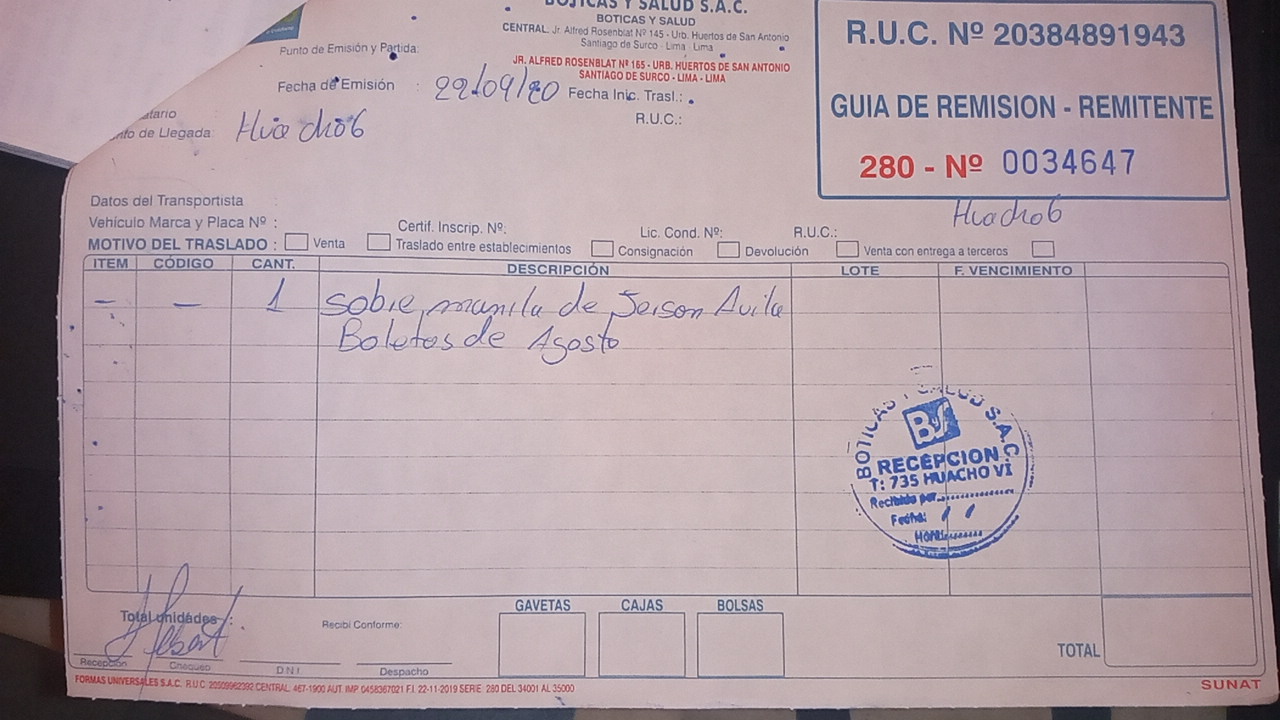 BOTICAS Y SALUD S.A.C.
BOTICAS Y SALUD
CENTRAL: Jr. Alfred Rosenblat Nº 145 - Urb. Huertos de San Antonio
Santiago de Surco - Lima - Lima
JR. ALFRED ROSENBLAT Nº 165 - URB. HUERTOS DE SAN ANTONIO
SANTIAGO DE SURCO - LIMA - LIMA
R.U.C. Nº 20384891943
GUIA DE REMISION - REMITENTE
280 - Nº 0034647
Punto de Emisión y Partida:
Fecha de Emisión : 22/09/20 Fecha Inic. Trasl.:
R.U.C.:
de Llegada: Huacho6
Huacho6
Datos del Transportista
Vehículo Marca y Placa Nº : Certif. Inscrip. Nº: Lic. Cond. Nº: R.U.C.:
MOTIVO DEL TRASLADO : Venta Traslado entre establecimientos Consignación Devolución Venta con entrega a terceros
ITEM CÓDIGO CANT. DESCRIPCIÓN LOTE F. VENCIMIENTO
- - 1 Sobre manila de Jeison Avila
Boletas de Agosto
BOTICAS Y SALUD S.A.C.
BS
RECEPCION
T: 735 HUACHO VI
Recibido por
Fecha: / /
Hora:
Total unidades :
Recibí Conforme:
GAVETAS CAJAS BOLSAS
TOTAL
Recepción Chequeo D.N.I. Despacho
FORMAS UNIVERSALES S.A.C. R.U.C. CENTRAL: 467-1900 AUT. IMP. 0458367021 F.I. 22-11-2019 SERIE: 280 DEL 34001 AL 35000
SUNAT